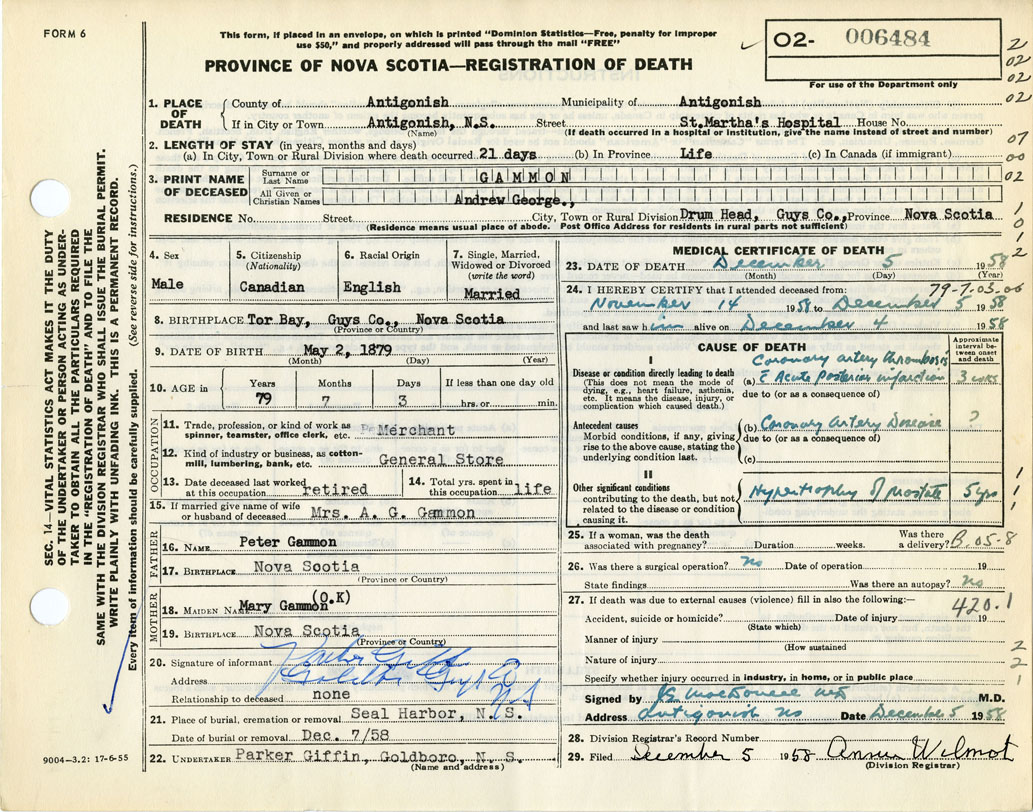 FORM 6
This form, if placed in an envelope, on which is printed "Dominion Statistics—Free, penalty for improper
use $50," and properly addressed will pass through the mail "FREE"
PROVINCE OF NOVA SCOTIA—REGISTRATION OF DEATH
02- 006484
For use of the Department only
2
02
02
02
07
00
02
1
0
1
2
SEC. 14—VITAL STATISTICS ACT MAKES IT THE DUTY
OF THE UNDERTAKER OR PERSON ACTING AS UNDER-
TAKER TO OBTAIN ALL THE PARTICULARS REQUIRED
IN THE "REGISTRATION OF DEATH" AND TO FILE THE
SAME WITH THE DIVISION REGISTRAR WHO SHALL ISSUE THE BURIAL PERMIT.
WRITE PLAINLY WITH UNFADING INK. THIS IS A PERMANENT RECORD.
Every item of information should be carefully supplied. (See reverse side for instructions.)
1. PLACE OF DEATH County of Antigonish Municipality of Antigonish
If in City or Town Antigonish, N.S. Street St.Martha's Hospital House No.
(Name) (If death occurred in a hospital or institution, give the name instead of street and number)
2. LENGTH OF STAY (in years, months and days)
(a) In City, Town or Rural Division where death occurred 21 days (b) In Province Life (c) In Canada (if immigrant)
3. PRINT NAME OF DECEASED Surname or Last Name GAMMON
All Given or Christian Names Andrew George.,
RESIDENCE No. Street City, Town or Rural Division Drum Head, Guys Co., Province Nova Scotia
(Residence means usual place of abode. Post Office Address for residents in rural parts not sufficient)
4. Sex Male
5. Citizenship (Nationality) Canadian
6. Racial Origin English
7. Single, Married, Widowed or Divorced (write the word) Married
8. BIRTHPLACE Tor Bay, Guys Co., Nova Scotia
(Province or Country)
9. DATE OF BIRTH May 2, 1879
(Month) (Day) (Year)
10. AGE in Years Months Days If less than one day old
79 7 3 hrs. or min.
OCCUPATION
11. Trade, profession, or kind of work as spinner, teamster, office clerk, etc. Merchant
12. Kind of industry or business, as cotton-mill, lumbering, bank, etc. General Store
13. Date deceased last worked at this occupation retired
14. Total yrs. spent in this occupation life
15. If married give name of wife or husband of deceased Mrs. A. G. Gammon
FATHER
16. NAME Peter Gammon
17. BIRTHPLACE Nova Scotia
(Province or Country)
MOTHER
18. MAIDEN NAME Mary Gammon (O.K)
19. BIRTHPLACE Nova Scotia
(Province or Country)
20. Signature of informant
Address
Relationship to deceased none
21. Place of burial, cremation or removal Seal Harbor, N. S.
Date of burial or removal Dec. 7/58
22. UNDERTAKER Parker Giffin, Goldboro, N.S.
(Name and address)
9004—3.2: 17-6-55
MEDICAL CERTIFICATE OF DEATH
23. DATE OF DEATH December 5 1958
(Month) (Day) (Year)
24. I HEREBY CERTIFY that I attended deceased from: 79-7.03.06
November 14 1958 to December 5 1958
and last saw him alive on December 4 1958
CAUSE OF DEATH
Approximate interval between onset and death
I
Disease or condition directly leading to death
(This does not mean the mode of dying, e.g., heart failure, asthenia, etc. It means the disease, injury, or complication which caused death.)
Coronary artery thrombosis
(a) c Acute Posterior infarction 3 wks
due to (or as a consequence of)
Antecedent causes
Morbid conditions, if any, giving rise to the above cause, stating the underlying condition last.
(b) Coronary Artery Disease ?
due to (or as a consequence of)
(c)
II
Other significant conditions
contributing to the death, but not related to the disease or condition causing it.
Hypertrophy of prostate 5 yrs
1
1
1
25. If a woman, was the death associated with pregnancy? Duration weeks. Was there a delivery? B.05-8
26. Was there a surgical operation? No Date of operation 19
State findings Was there an autopsy? No
27. If death was due to external causes (violence) fill in also the following:— 420.1
Accident, suicide or homicide? Date of injury 19
(State which)
Manner of injury
(How sustained
Nature of injury
Specify whether injury occurred in industry, in home, or in public place
2
2
1
Signed by MacDonnell M.D.
Address Antigonish NS Date December 5 1958
28. Division Registrar's Record Number
29. Filed December 5 1958 Annie Wilmot
(Division Registrar)